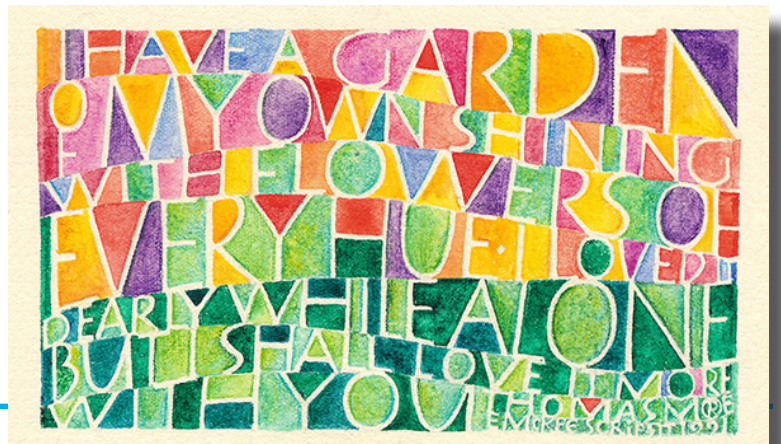 I HAVE A GARDEN
OF MY OWN SHINING
WITH FLOWERS OF
EVERY HUE · I LOVED IT
DEARLY WHILE ALONE
BUT I SHALL LOVE IT MORE
WITH YOU THOMAS MOORE
E MCKEE SCRIPSIT 1991